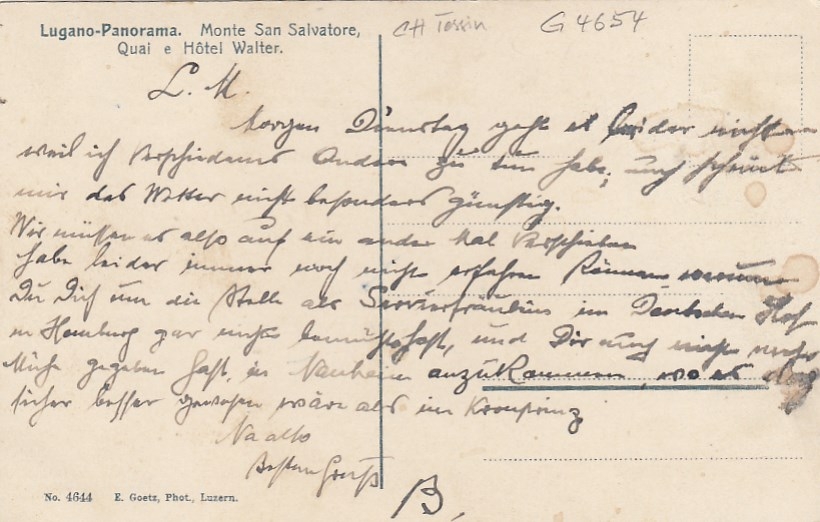 Lugano-Panorama. Monte San Salvatore,
Quai e Hôtel Walter.
CH Tessin
G 4654
L. M.
Morgen Dienstag geht es leider nicht
weil ich verschiedenes Andere zu tun habe, auch scheint
mir das Wetter nicht besonders günstig.
Wir müssen es also auf ein ander Mal verschieben
habe leider immer noch nicht erfahren können, warum
Du Dich um die Stelle als Servierfräulein im Deutschen Hof
in Homburg gar nicht bemüht hast, und Dir auch nicht mehr
Mühe gegeben hast, in Nauheim anzukommen, wo es doch
sicher besser gewesen wäre als im Kronprinz
Na also
Besten Gruß
B.
No. 4644 E. Goetz, Phot., Luzern.